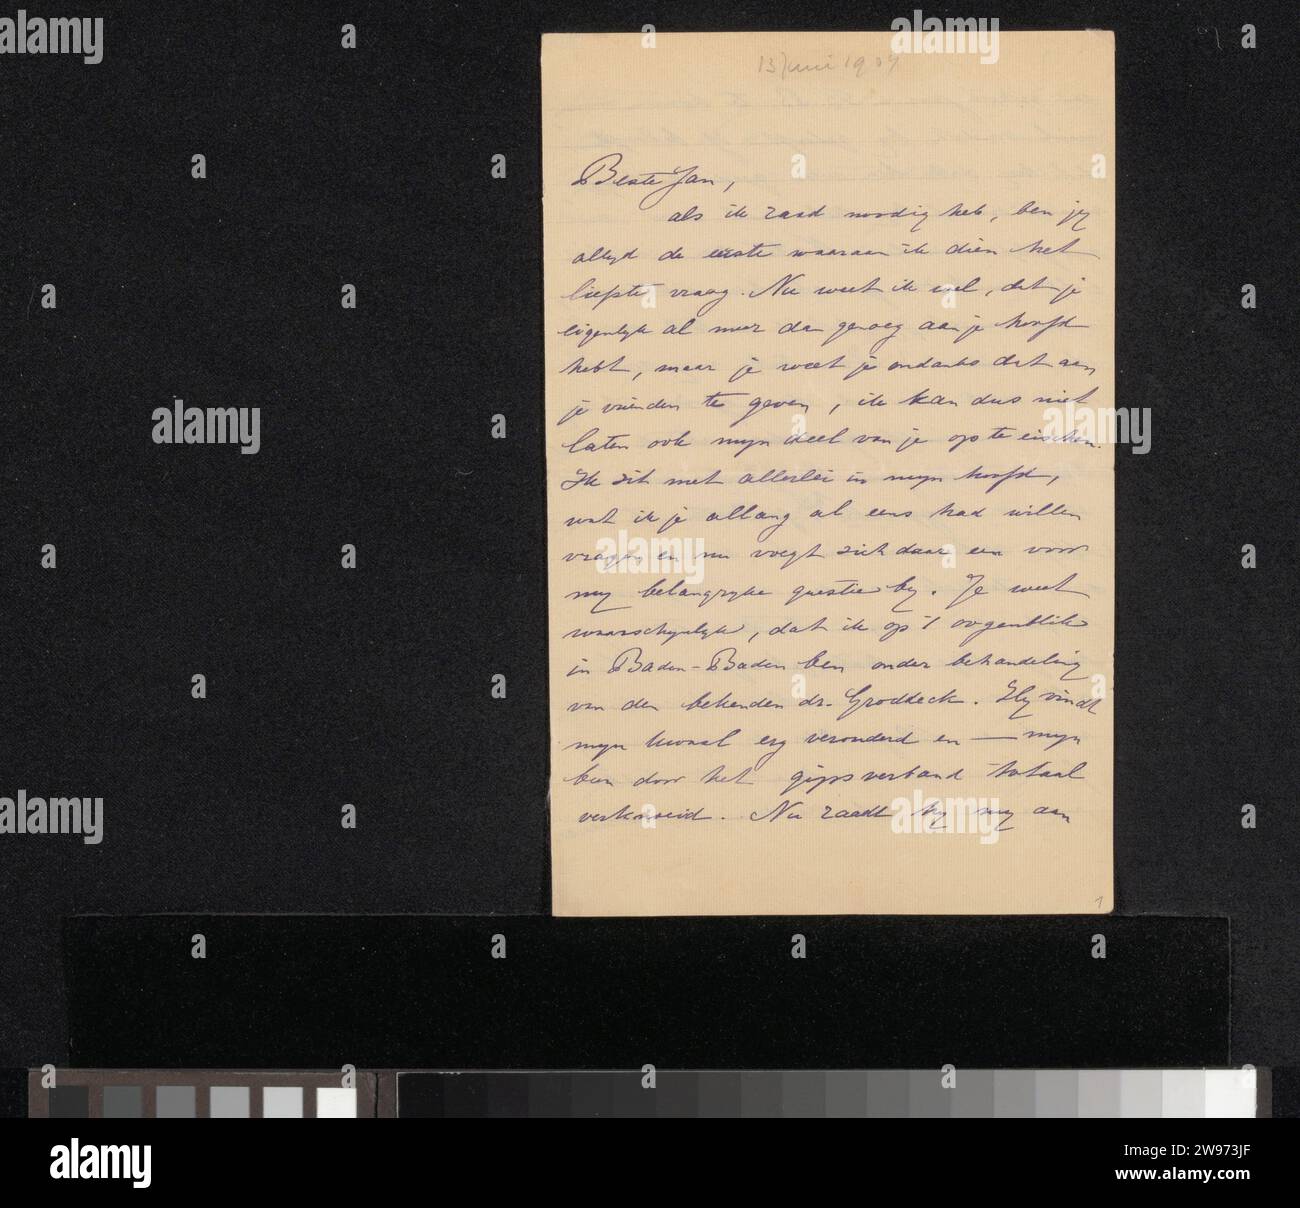 13 Juni 1909
Beste Jan,
als ik raad noodig heb, ben jy
altyd de eerste waaraan ik dien het
liefste vraag. Nu weet ik wel, dat je
eigenlyk al meer dan genoeg aan je hoofd
hebt, maar je weet je ondanks dat aan
je vrienden te geven, ik kan dus niet
laten ook myn deel van je op te eischen.
Ik zit met allerlei in myn hoofd,
wat ik je allang al eens had willen
vragen en nu voegt zich daar een voor
my belangryke questie by. Je weet
waarschynlyk, dat ik op 't oogenblik
in Baden-Baden ben onder behandeling
van den bekenden dr. Groddeck. Hy vindt
myn kwaal erg veronderd en — myn
been door het gipsverband totaal
verknoeid. Nu raadt hy my aan
1
alamy
Image ID: 2W973JF
www.alamy.com